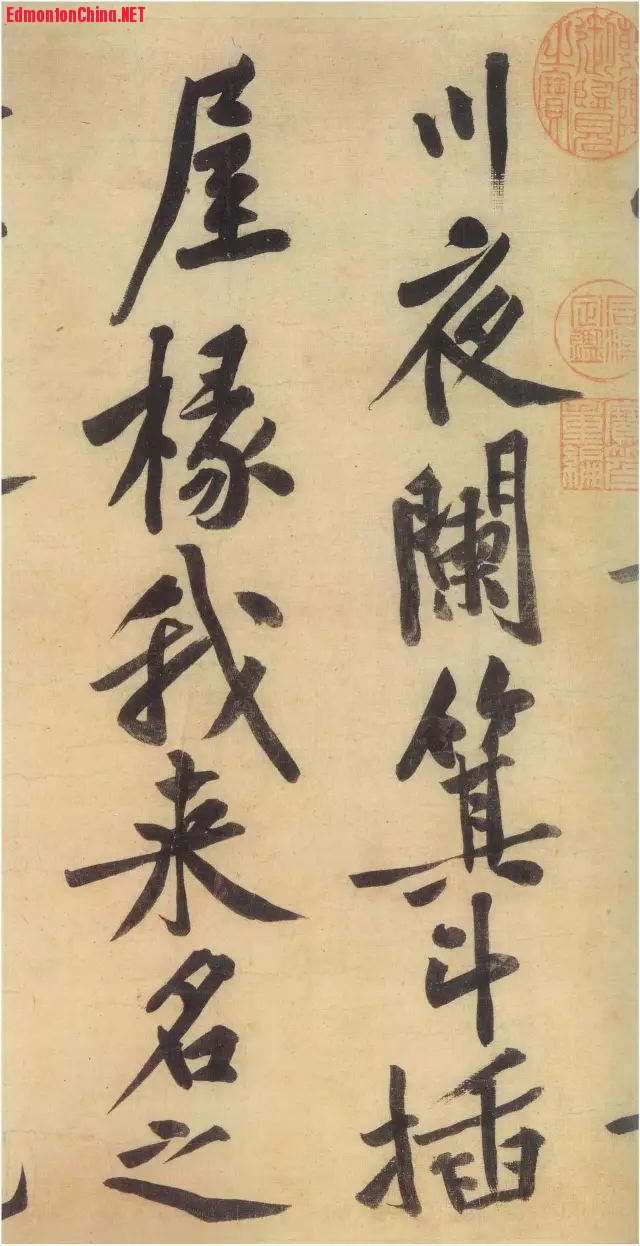 EdmontonChina.NET
川夜闌箕斗插
屋椽我来名之